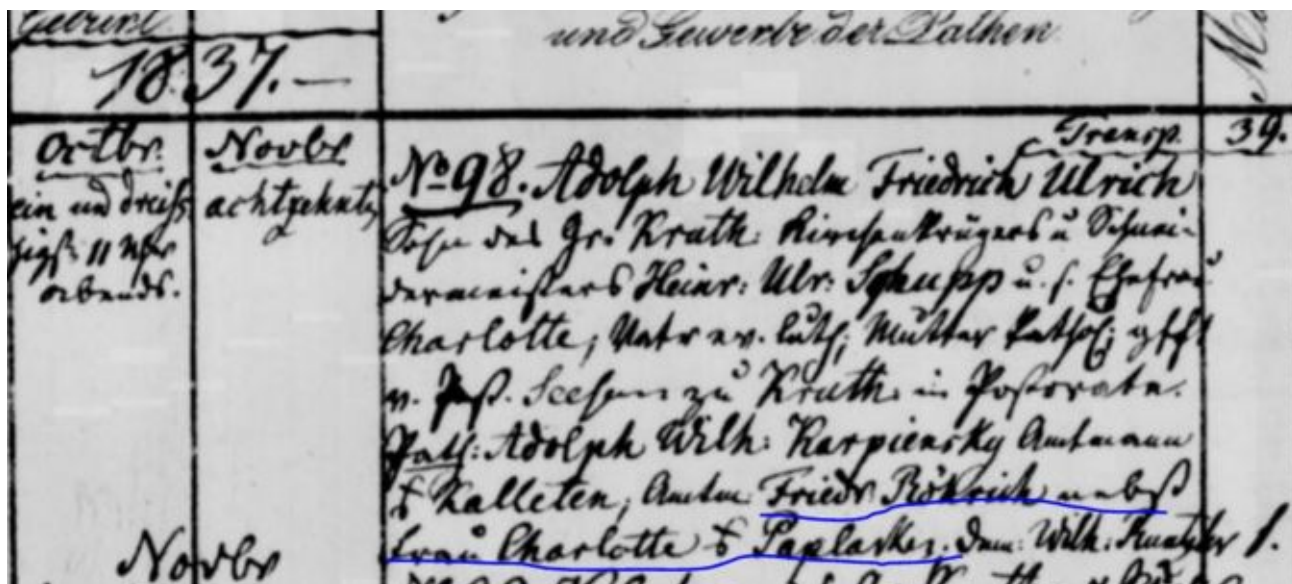 Geburt
und Gewerbe der Pathen
1837.—
Octbr.
ein und dreißzigst 11 Uhr
abends.
Novbr
achtzehnte
Transp. 39.
No 98. Adolph Wilhelm Friedrich Ulrich
Sohn des Gr. Kruth. Kirchenkrügers u Schnei-
dermeisters Heinr: Ulr: Schupp u. s. Ehefrau
Charlotte; Vater ev. luth; Mutter kathol;
v. Past. zu Kruth. in Pastorate.
Path: Adolph Wilh: Karpiensky Amtmann
Kalleten, Amtm: Friedr Röhrich nebst
Frau Charlotte Paplacken. Dem: Wilh: 1.
Novbr